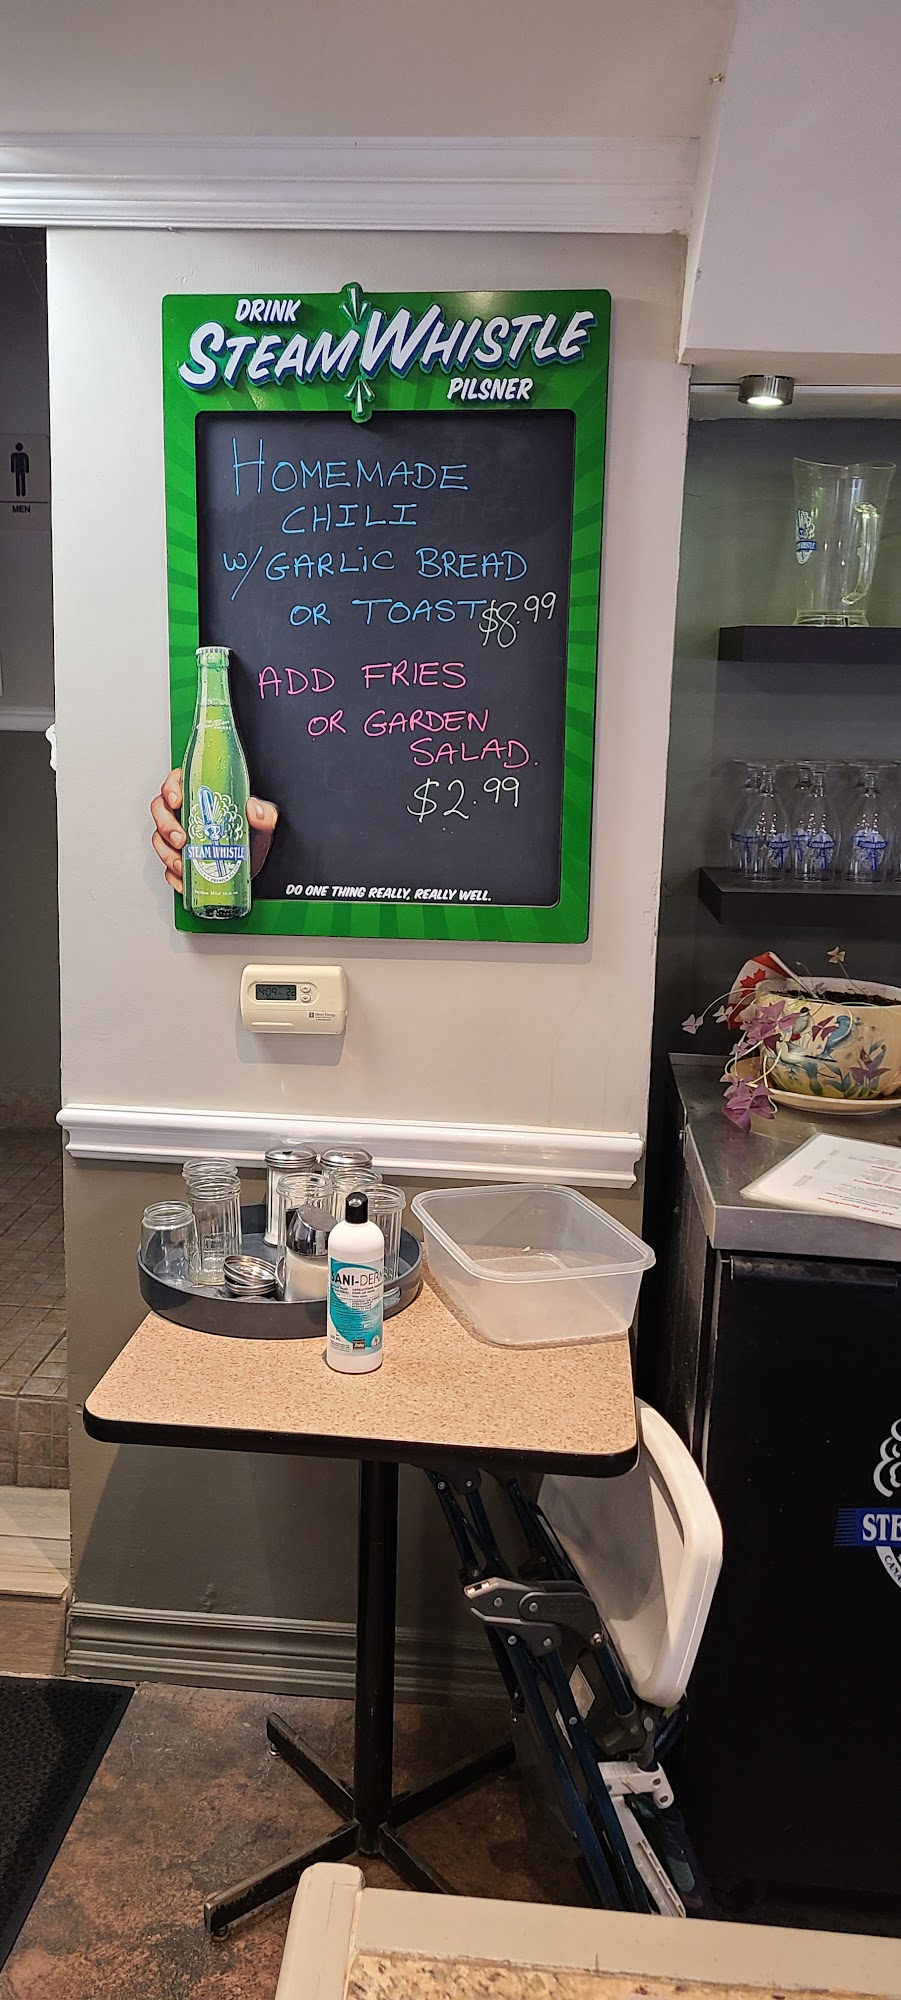 DRINK
STEAM WHISTLE
PILSNER
HOMEMADE
CHILI
W/ GARLIC BREAD
OR TOAST $8.99
ADD FRIES
OR GARDEN
SALAD.
$2.99
STEAM WHISTLE
DO ONE THING REALLY, REALLY WELL.
MEN
SANI-DERM
STE